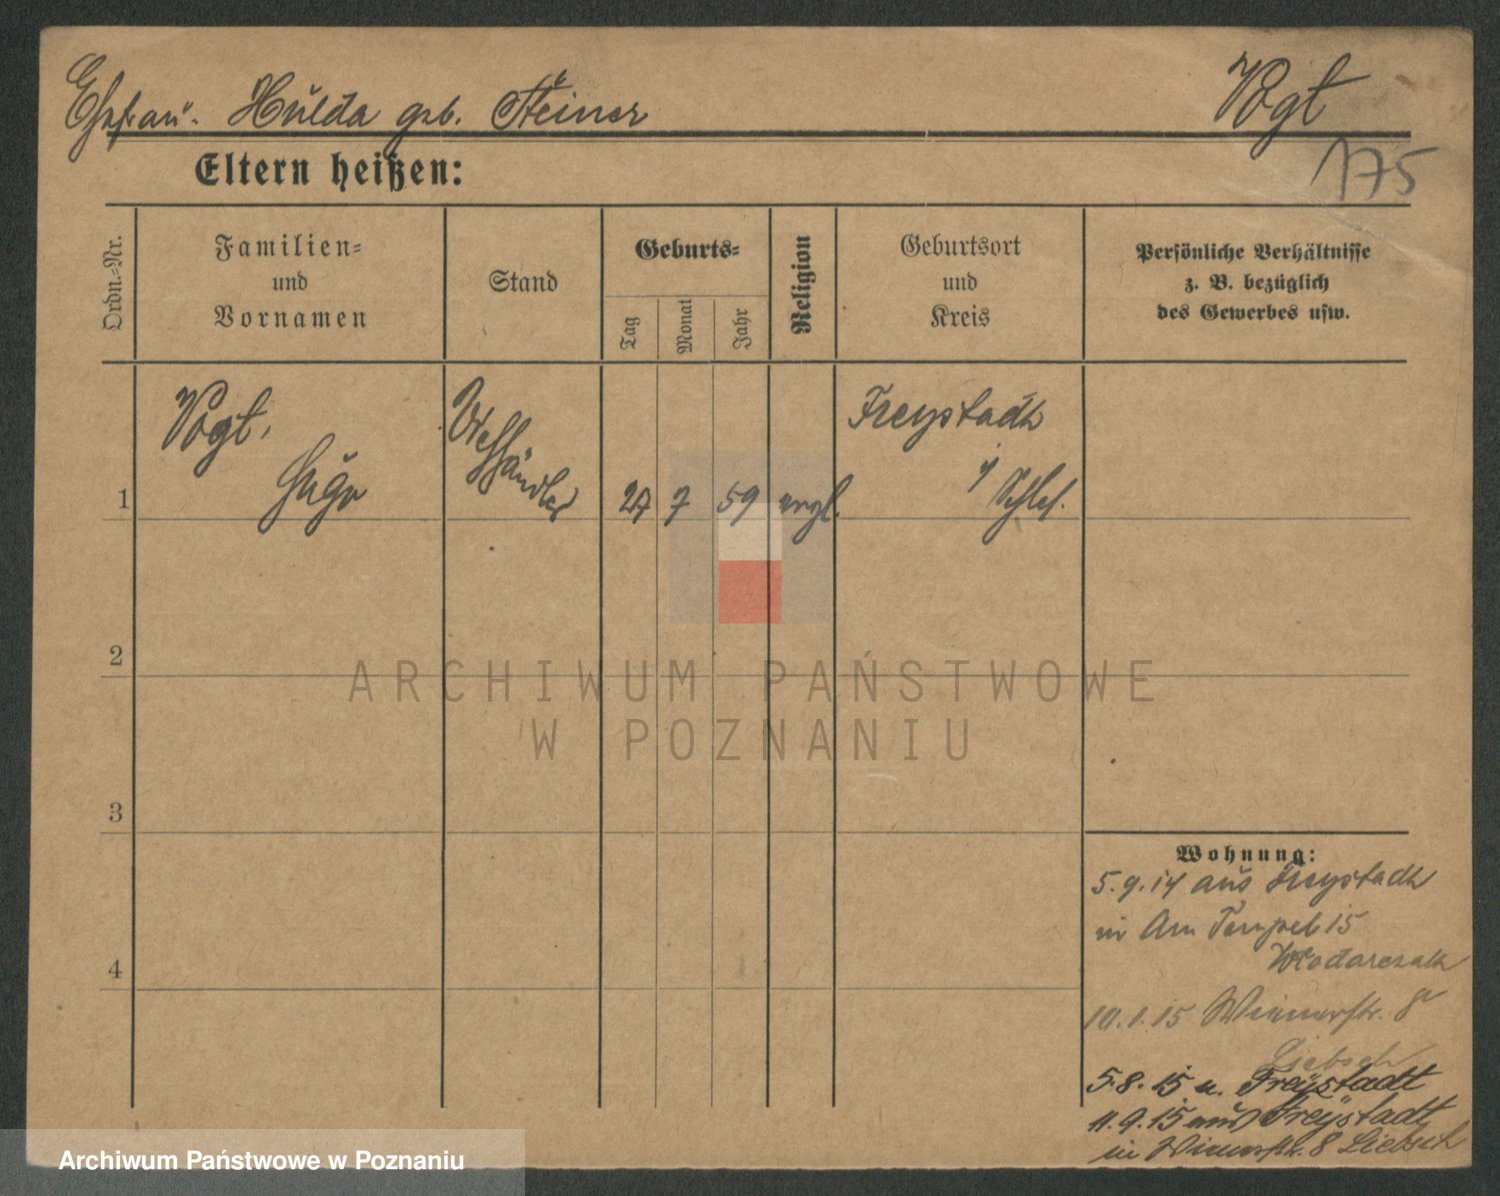 Ehefrau. Hulda geb. Steiner
Vogt
175
Eltern heißen:
Ordn.-Nr.
Familien-
und
Vornamen
Stand
Geburts-
Tag
Monat
Jahr
Religion
Geburtsort
und
Kreis
Persönliche Verhältnisse
z. B. bezüglich
des Gewerbes usw.
1
Vogt,
Hugo
Viehhändler
27
7
59
evgl.
Freystadt
i/ Schles.
2
3
4
ARCHIWUM PAŃSTWOWE
W POZNANIU
Wohnung:
5.9.14 aus Freystadt
in Am Tempel 15
Wlodarczak
10.1.15 Wienerstr. 8
Liebsch
5.8.15 n. Freystadt
11.9.15 aus Freystadt
in Wienerstr. 8 Liebsch
Archiwum Państwowe w Poznaniu